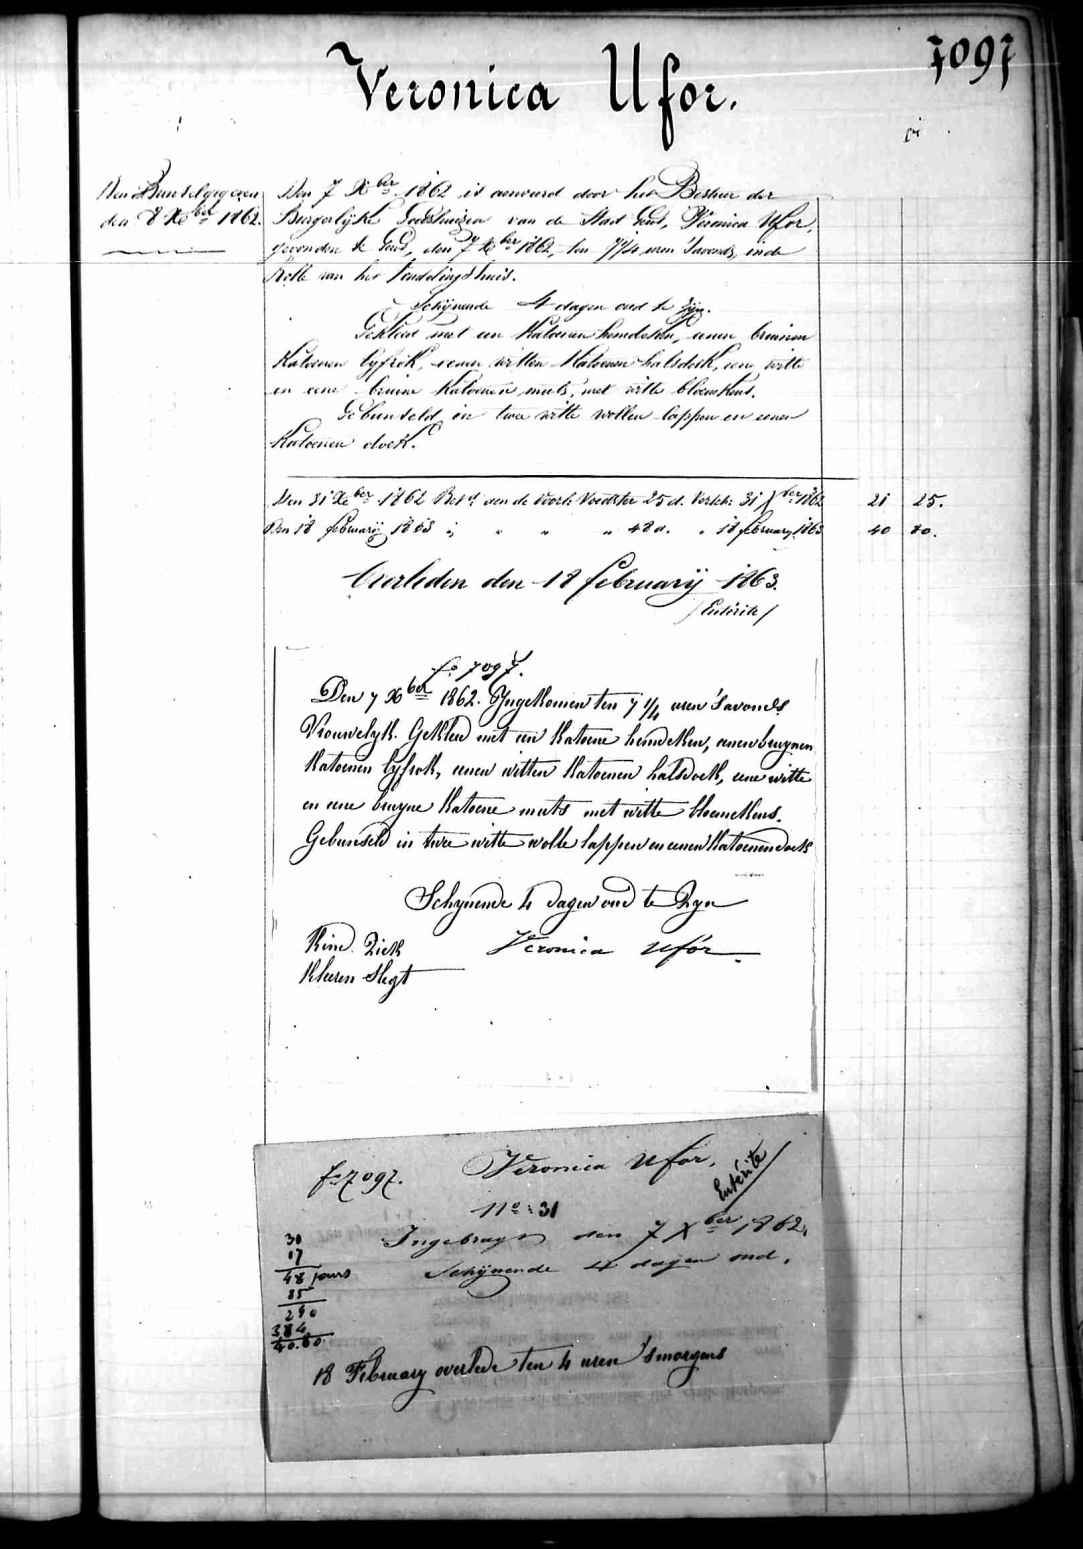 7097
Veronica Ufor.
den 8 Xber 1862.
Den 7 Xber 1862 is aanveerd door het Bestier der
Burgerlijke Godshuizen van de Stad Gend, Veronica Ufor,
gevonden te Gend, den 7 Xber 1862, ten 7 1/4 uren 'savonds, in de
Rolle van het Vondelingshuis.
Schijnende 4 dagen oud te zijn.
Gekleed met een Katoenen hemdeken, eenen bruinen
Katoenen lyfrok, eenen witten Katoenen halsdoek, eene witte
en eene bruine Katoenen muts, met witte bloemkens.
Gebunseld in twee witte wollen lappen en eenen
Katoenen doek.
Den 31 Xber 1862 Bet. aan de Voedster 25 d. 31 Xber 1862 21 25.
Den 18 februarij 1863 " " " 48 d. " 18 february 1863 40 80.
Overleden den 18 februarij 1863.
/Enterite/
f° 7097.
Den 7 Xber 1862. Ingekomen ten 7 1/4 uren 'savonds
Vrouwelyk. Gekleed met een Katoene hemdeken, eenen bruynen
Katoenen lyfrok, eenen witten Katoenen halsdoek, eene witte
en eene bruyne Katoene muts met witte bloemekens.
Gebunseld in twee witte wolle lappen en eenen Katoenen doek
Schynende 4 dagen oud te Zyn
Kind Ziek Veronica Ufor.
Kleeren Slegt
f° 7097. Veronica Ufor.
Enterite
N° 31
Ingebragt den 7 Xber 1862.
Schijnende 4 dagen oud.
30
17
48 jours
85
240
384
40.80
18 February overlede ten 4 uren 'smorgens